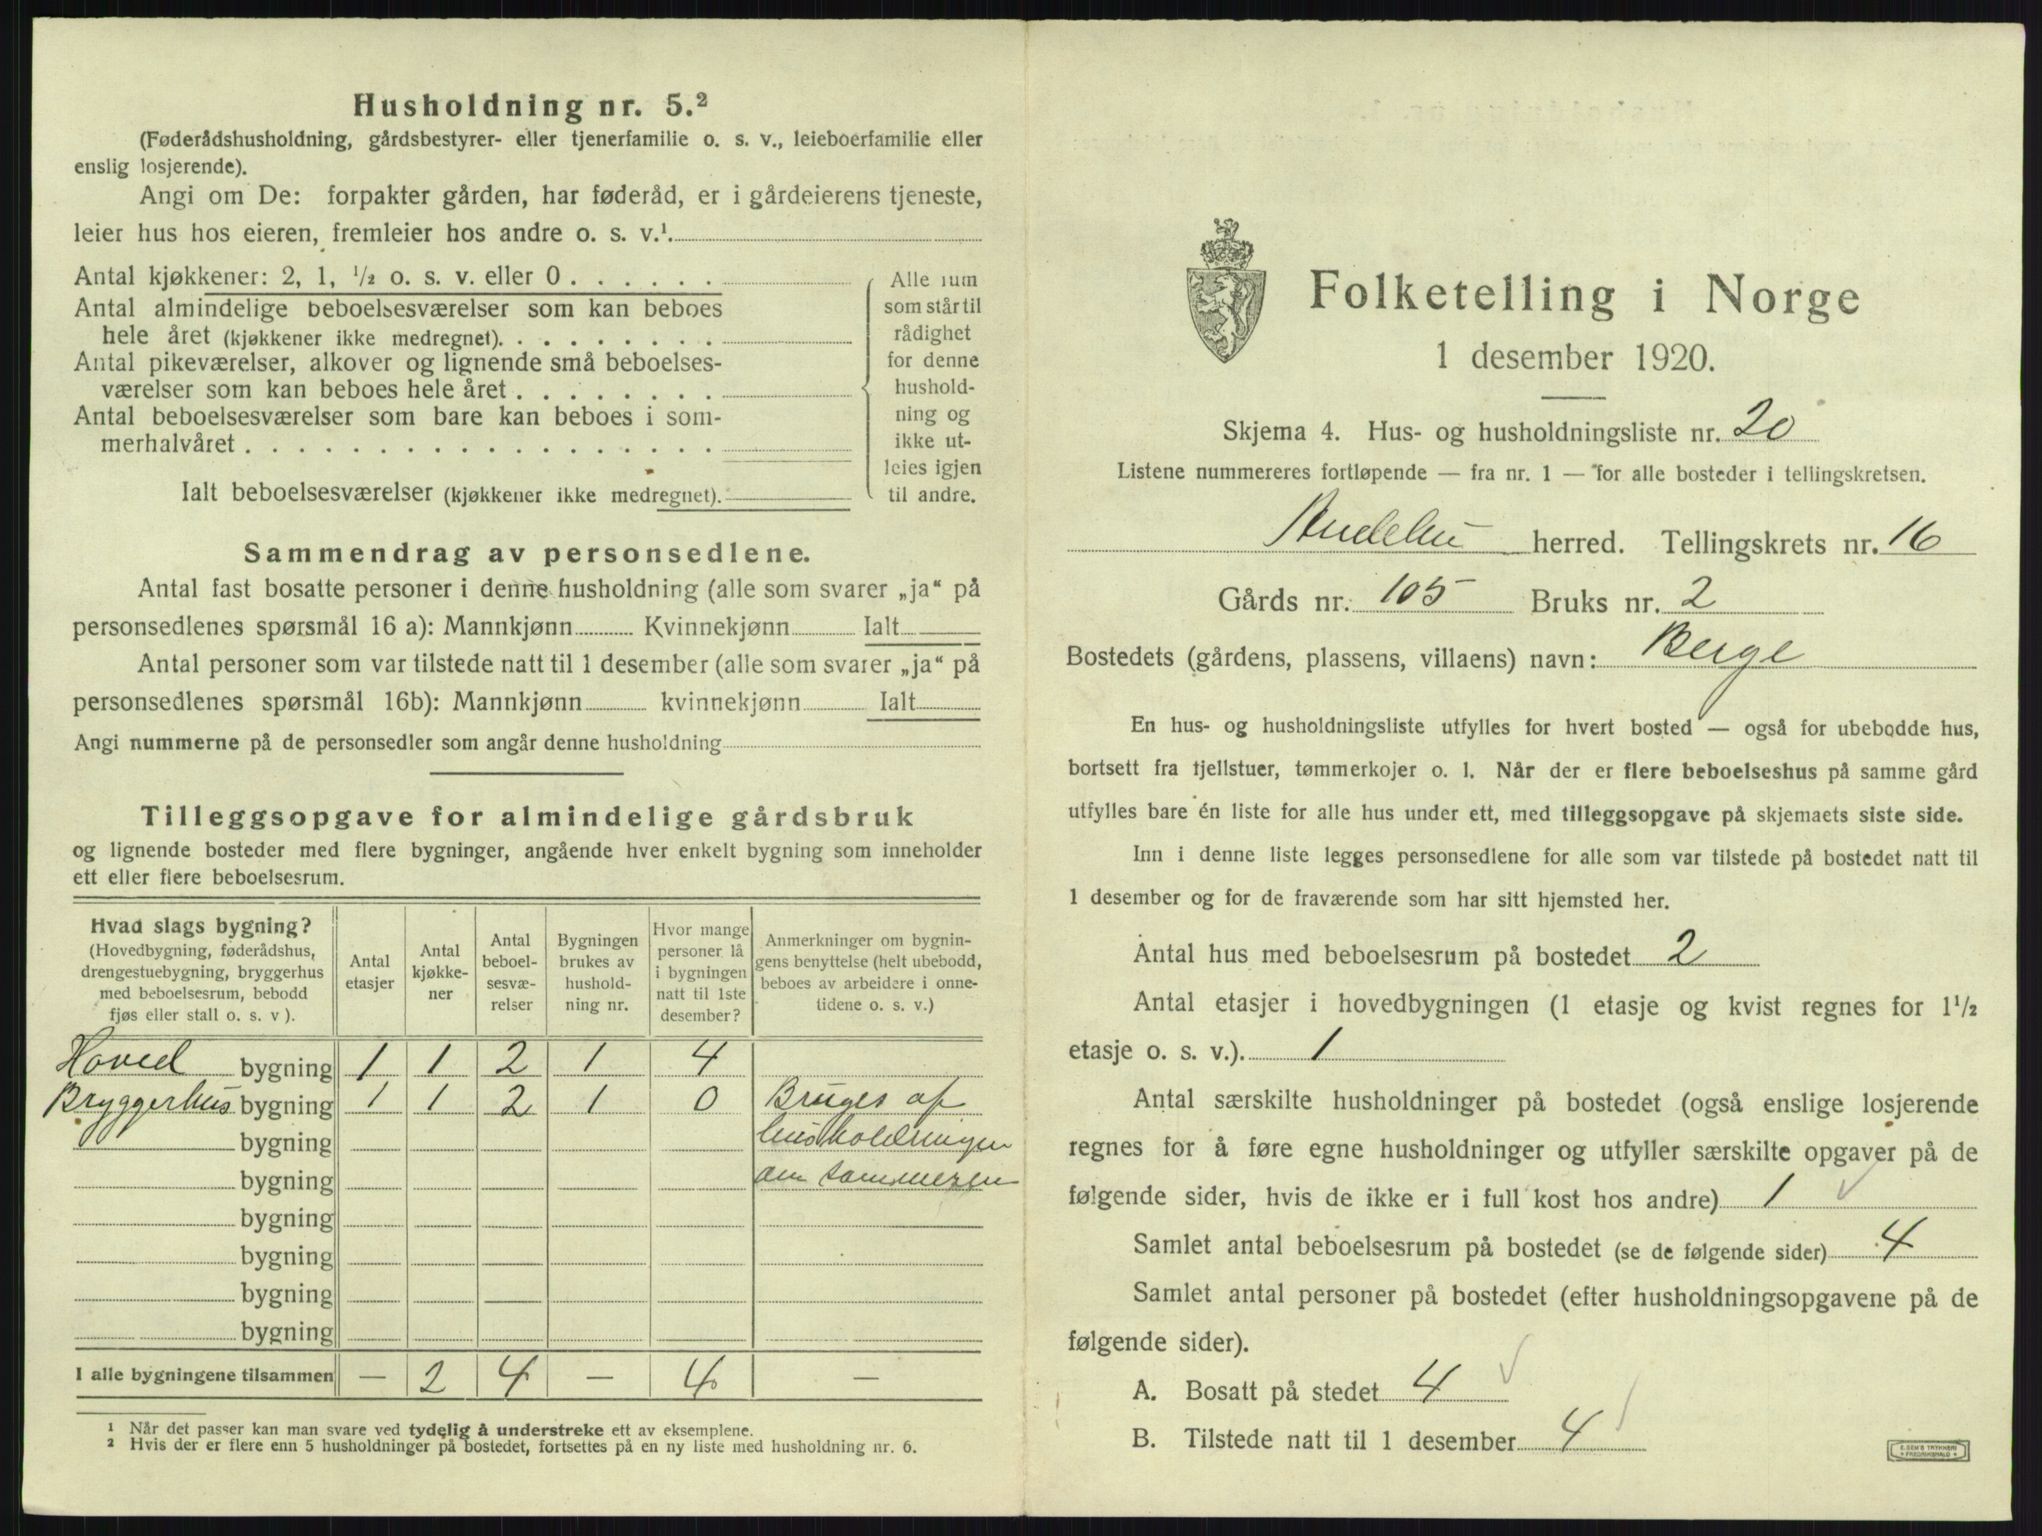 Husholdning nr. 5.²
(Føderådshusholdning, gårdsbestyrer- eller tjenerfamilie o. s. v., leieboerfamilie eller
enslig losjerende).
Angi om De: forpakter gården, har føderåd, er i gårdeierens tjeneste,
leier hus hos eieren, fremleier hos andre o. s. v.¹.
Antal kjøkkener: 2, 1, ½ o. s. v. eller 0 . . . . . .
Antal almindelige beboelsesværelser som kan beboes
hele året (kjøkkener ikke medregnet). . . . . . . . .
Antal pikeværelser, alkover og lignende små beboelses-
værelser som kan beboes hele året . . . . . . . .
Antal beboelsesværelser som bare kan beboes i som-
merhalvåret . . . . . . . . . . . . . . . . . .
Ialt beboelsesværelser (kjøkkener ikke medregnet).
Alle rum
som står til
rådighet
for denne
hushold-
ning og
ikke ut-
leies igjen
til andre.
Sammendrag av personsedlene.
Antal fast bosatte personer i denne husholdning (alle som svarer „ja“ på
personsedlenes spørsmål 16 a): Mannkjønn Kvinnekjønn Ialt
Antal personer som var tilstede natt til 1 desember (alle som svarer „ja“ på
personsedlenes spørsmål 16b): Mannkjønn kvinnekjønn Ialt
Angi nummerne på de personsedler som angår denne husholdning
Tilleggsopgave for almindelige gårdsbruk
og lignende bosteder med flere bygninger, angående hver enkelt bygning som inneholder
ett eller flere beboelsesrum.
Hvad slags bygning?
(Hovedbygning, føderådshus,
drengestuebygning, bryggerhus
med beboelsesrum, bebodd
fjøs eller stall o. s. v ).
Antal
etasjer
Antal
kjøkke-
ner
Antal
beboel-
sesvæ-
relser
Bygningen
brukes av
hushold-
ning nr.
Hvor mange
personer lå
i bygningen
natt til 1ste
desember?
Anmerkninger om bygnin-
gens benyttelse (helt ubebodd,
beboes av arbeidere i onne-
tidene o. s. v.)
Hoved bygning 1 1 2 1 4
Bryggerhus bygning 1 1 2 1 0 Bruges af
bygning husholdningen
bygning om sommeren
bygning
bygning
bygning
bygning
I alle bygningene tilsammen — 2 4 — 4 —
¹ Når det passer kan man svare ved tydelig å understreke ett av eksemplene.
² Hvis der er flere enn 5 husholdninger på bostedet, fortsettes på en ny liste med husholdning nr. 6.
Folketelling i Norge
1 desember 1920.
Skjema 4. Hus- og husholdningsliste nr. 20
Listene nummereres fortløpende — fra nr. 1 — for alle bosteder i tellingskretsen.
Andebu herred. Tellingskrets nr. 16
Gårds nr. 105 Bruks nr. 2
Bostedets (gårdens, plassens, villaens) navn: Berge
En hus- og husholdningsliste utfylles for hvert bosted — også for ubebodde hus,
bortsett fra fjellstuer, tømmerkojer o. l. Når der er flere beboelseshus på samme gård
utfylles bare én liste for alle hus under ett, med tilleggsopgave på skjemaets siste side.
Inn i denne liste legges personsedlene for alle som var tilstede på bostedet natt til
1 desember og for de fraværende som har sitt hjemsted her.
Antal hus med beboelsesrum på bostedet 2
Antal etasjer i hovedbygningen (1 etasje og kvist regnes for 1½
etasje o. s. v.). 1
Antal særskilte husholdninger på bostedet (også enslige losjerende
regnes for å føre egne husholdninger og utfyller særskilte opgaver på de
følgende sider, hvis de ikke er i full kost hos andre) 1 ✓
Samlet antal beboelsesrum på bostedet (se de følgende sider) 4
Samlet antal personer på bostedet (efter husholdningsopgavene på de
følgende sider).
A. Bosatt på stedet 4 ✓
B. Tilstede natt til 1 desember 4
E. SEM'S TRYKKERI
FREDRIKSHALD